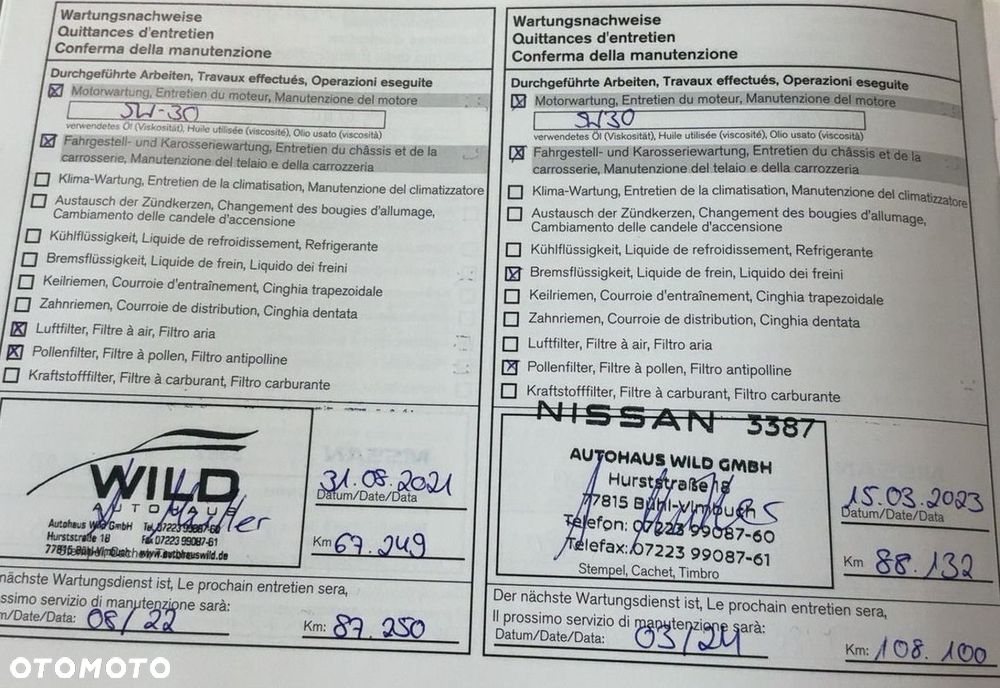 Wartungsnachweise
Quittances d'entretien
Conferma della manutenzione
Durchgeführte Arbeiten, Travaux effectués, Operazioni eseguite
Motorwartung, Entretien du moteur, Manutenzione del motore
5W-30
verwendetes Öl (Viskosität), Huile utilisée (viscosité), Olio usato (viscosità)
Fahrgestell- und Karosseriewartung, Entretien du châssis et de la
carrosserie, Manutenzione del telaio e della carrozzeria
Klima-Wartung, Entretien de la climatisation, Manutenzione del climatizzatore
Austausch der Zündkerzen, Changement des bougies d'allumage,
Cambiamento delle candele d'accensione
Kühlflüssigkeit, Liquide de refroidissement, Refrigerante
Bremsflüssigkeit, Liquide de frein, Liquido dei freini
Keilriemen, Courroie d'entraînement, Cinghia trapezoidale
Zahnriemen, Courroie de distribution, Cinghia dentata
Luftfilter, Filtre à air, Filtro aria
Pollenfilter, Filtre à pollen, Filtro antipolline
Kraftstofffilter, Filtre à carburant, Filtro carburante
WILD
AUTOHAUS
Autohaus Wild GmbH Tel. 07223 99087-60
Hurststraße 18 Fax 07223 99087-61
77815 Bühl-Vimbuch www.autohauswild.de
31.08.2021
Datum/Date/Data
Km 67.249
nächste Wartungsdienst ist, Le prochain entretien sera,
ossimo servizio di manutenzione sarà:
m/Date/Data: 08/22
Km: 87.250
Wartungsnachweise
Quittances d'entretien
Conferma della manutenzione
Durchgeführte Arbeiten, Travaux effectués, Operazioni eseguite
Motorwartung, Entretien du moteur, Manutenzione del motore
5W30
verwendetes Öl (Viskosität), Huile utilisée (viscosité), Olio usato (viscosità)
Fahrgestell- und Karosseriewartung, Entretien du châssis et de la
carrosserie, Manutenzione del telaio e della carrozzeria
Klima-Wartung, Entretien de la climatisation, Manutenzione del climatizzatore
Austausch der Zündkerzen, Changement des bougies d'allumage,
Cambiamento delle candele d'accensione
Kühlflüssigkeit, Liquide de refroidissement, Refrigerante
Bremsflüssigkeit, Liquide de frein, Liquido dei freini
Keilriemen, Courroie d'entraînement, Cinghia trapezoidale
Zahnriemen, Courroie de distribution, Cinghia dentata
Luftfilter, Filtre à air, Filtro aria
Pollenfilter, Filtre à pollen, Filtro antipolline
Kraftstofffilter, Filtre à carburant, Filtro carburante
NISSAN 3387
AUTOHAUS WILD GMBH
Hurststraße 18
77815 Bühl-Vimbuch
Telefon: 07223 99087-60
Telefax: 07223 99087-61
Stempel, Cachet, Timbro
15.03.2023
Datum/Date/Data
Km 88.132
Der nächste Wartungsdienst ist, Le prochain entretien sera,
Il prossimo servizio di manutenzione sarà:
Datum/Date/Data: 03/24
Km: 108.100
OTOMOTO